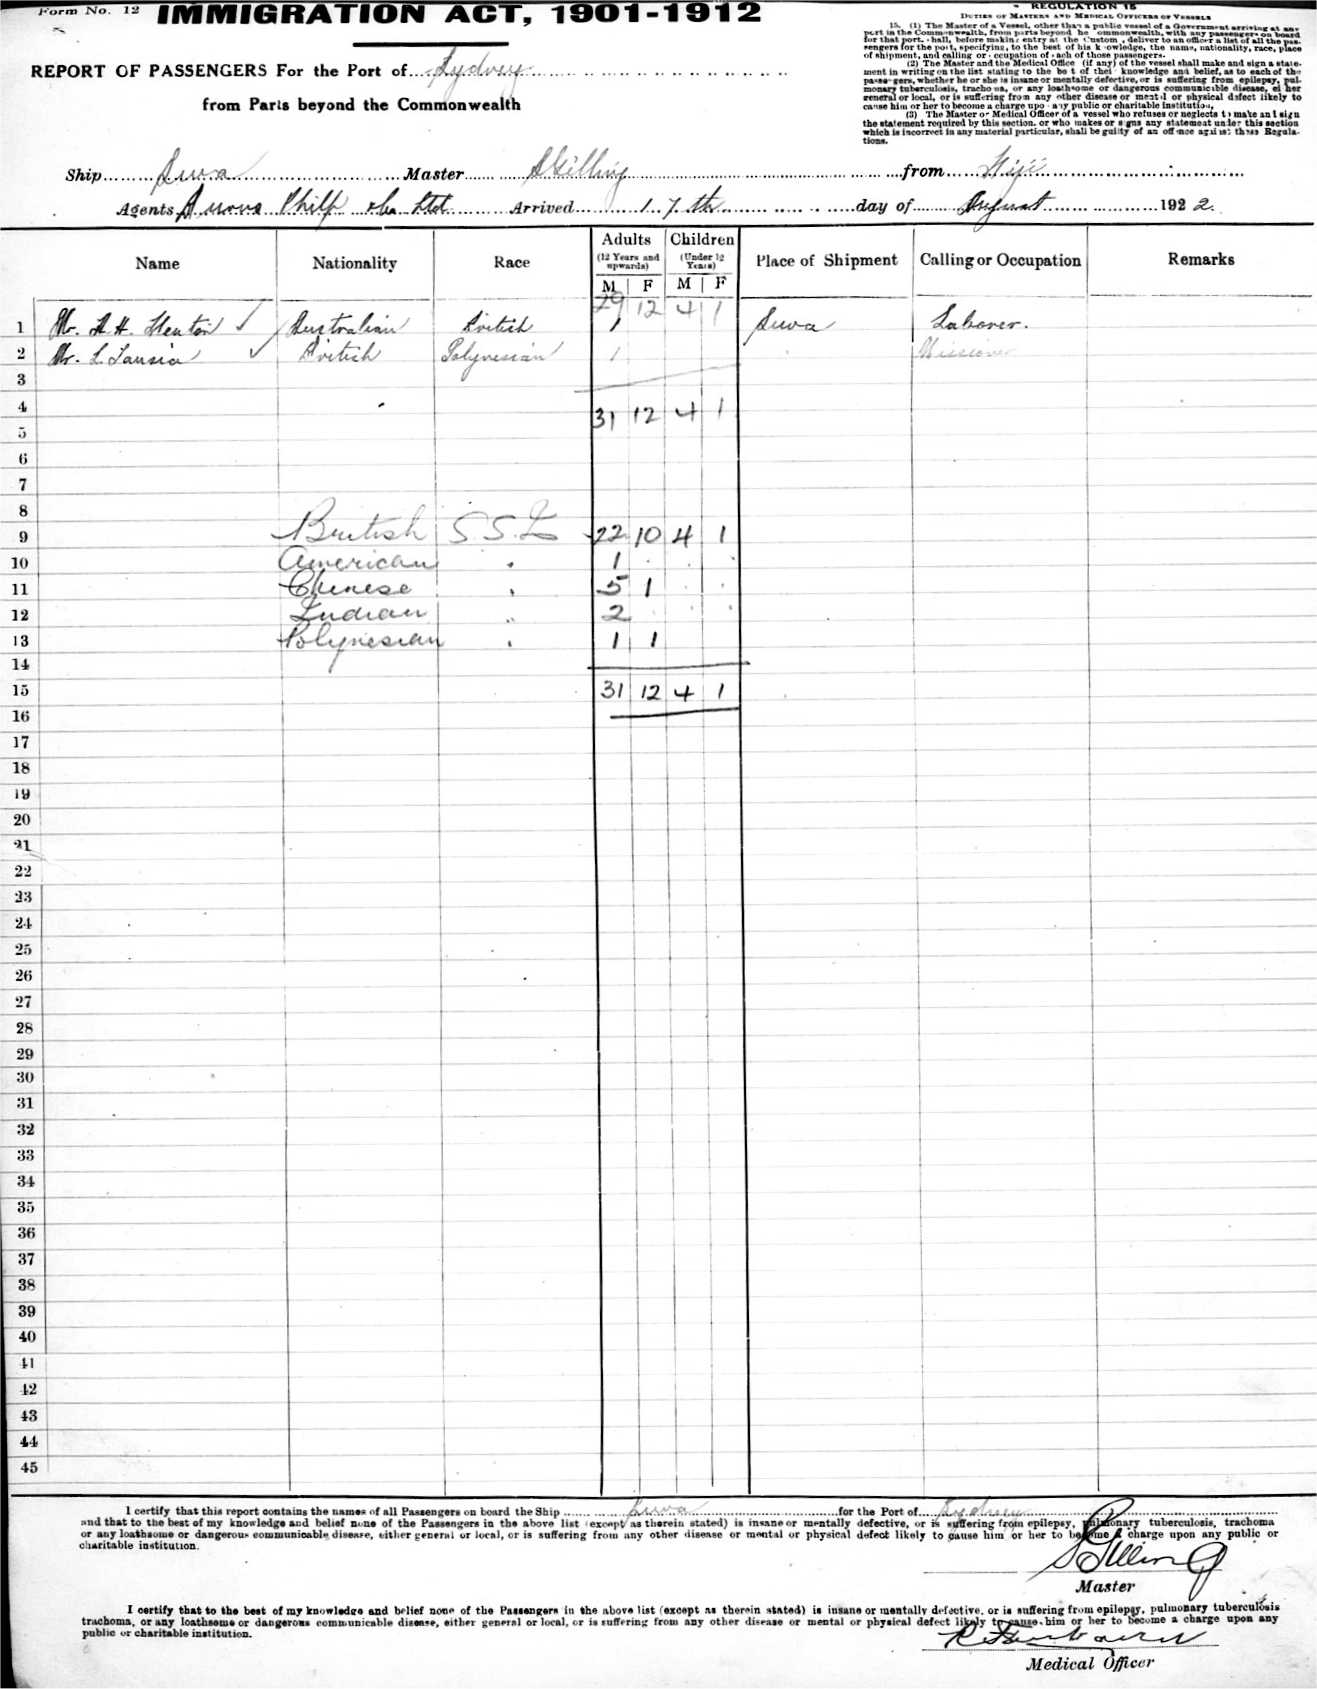 Form No. 12
IMMIGRATION ACT, 1901-1912
REPORT OF PASSENGERS For the Port of Sydney
from Parts beyond the Commonwealth
REGULATION 15
DUTIES OF MASTERS AND MEDICAL OFFICERS OF VESSELS
15. (1) The Master of a Vessel, other than a public vessel of a Government arriving at any
port in the Commonwealth, from parts beyond he ommonwealth, with any passengers on board
for that port. hall, before making entry at the Custom , deliver to an officer a list of all the pas-
sengers for the port, specifying, to the best of his k owledge, the name, nationality, race, place
of shipment, and calling or ccupation of ach of those passengers.
(2) The Master and the Medical Office (if any) of the vessel shall make and sign a state-
ment in writing on the list stating to the be t of thei knowledge and belief, as to each of the
passe gers, whether he or she is insane or mentally defective, or is suffering from epilepsy, pul-
monary tuberculosis, tracho na, or any loathsome or dangerous communicable disease, ei her
general or local, or is suffering from any other disease or mental or physical defect likely to
cause him or her to become a charge upo any public or charitable institution,
(3) The Master or Medical Officer of a vessel who refuses or neglects to make and sign
the statement required by this section. or who makes or signs any statement under this section
which is incorrect in any material particular, shall be guilty of an off nce against these Regula-
tions.
Ship Suva Master S Gilling from Fiji
Agents Burns Philp & Co Ltd Arrived 17th day of August 1922.
Name Nationality Race Adults Children Place of Shipment Calling or Occupation Remarks
(12 Years and upwards) (Under 12 Years)
M F M F
29 12 4 1
1 Mr. A. H. Heaton Australian British 1 Suva Laborer.
2 Mr. L. British Polynesian 1
3
4 31 12 4 1
5
6
7
8
9 British S.S. 22 10 4 1
10 American 1
11 Chinese 5 1
12 Indian 2
13 Polynesian 1 1
14
15 31 12 4 1
16
17
18
19
20
21
22
23
24
25
26
27
28
29
30
31
32
33
34
35
36
37
38
39
40
41
42
43
44
45
I certify that this report contains the names of all Passengers on board the Ship Suva for the Port of Sydney
and that to the best of my knowledge and belief none of the Passengers in the above list (except as therein stated) is insane or mentally defective, or is suffering from epilepsy, pulmonary tuberculosis, trachoma
or any loathsome or dangerous communicable disease, either general or local, or is suffering from any other disease or mental or physical defect likely to cause him or her to become a charge upon any public or
charitable institution.
S Gilling
Master
I certify that to the best of my knowledge and belief none of the Passengers in the above list (except as therein stated) is insane or mentally defective, or is suffering from epilepsy, pulmonary tuberculosis
trachoma, or any loathsome or dangerous communicable disease, either general or local, or is suffering from any other disease or mental or physical defect likely to cause him or her to become a charge upon any
public or charitable institution.
Medical Officer